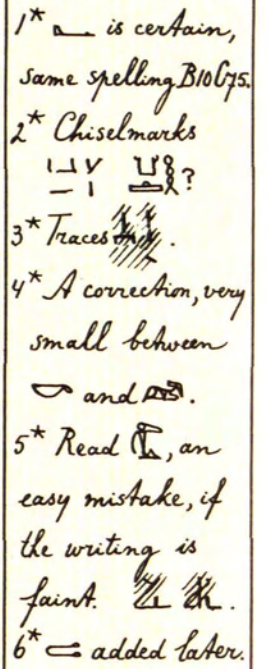 1* 𓈎 is certain,
same spelling B10C75.
2* Chiselmarks
?
3* Traces .
4* A correction, very
small between
𓎡 and .
5* Read , an
easy mistake, if
the writing is
faint. .
6* 𓍿 added later.